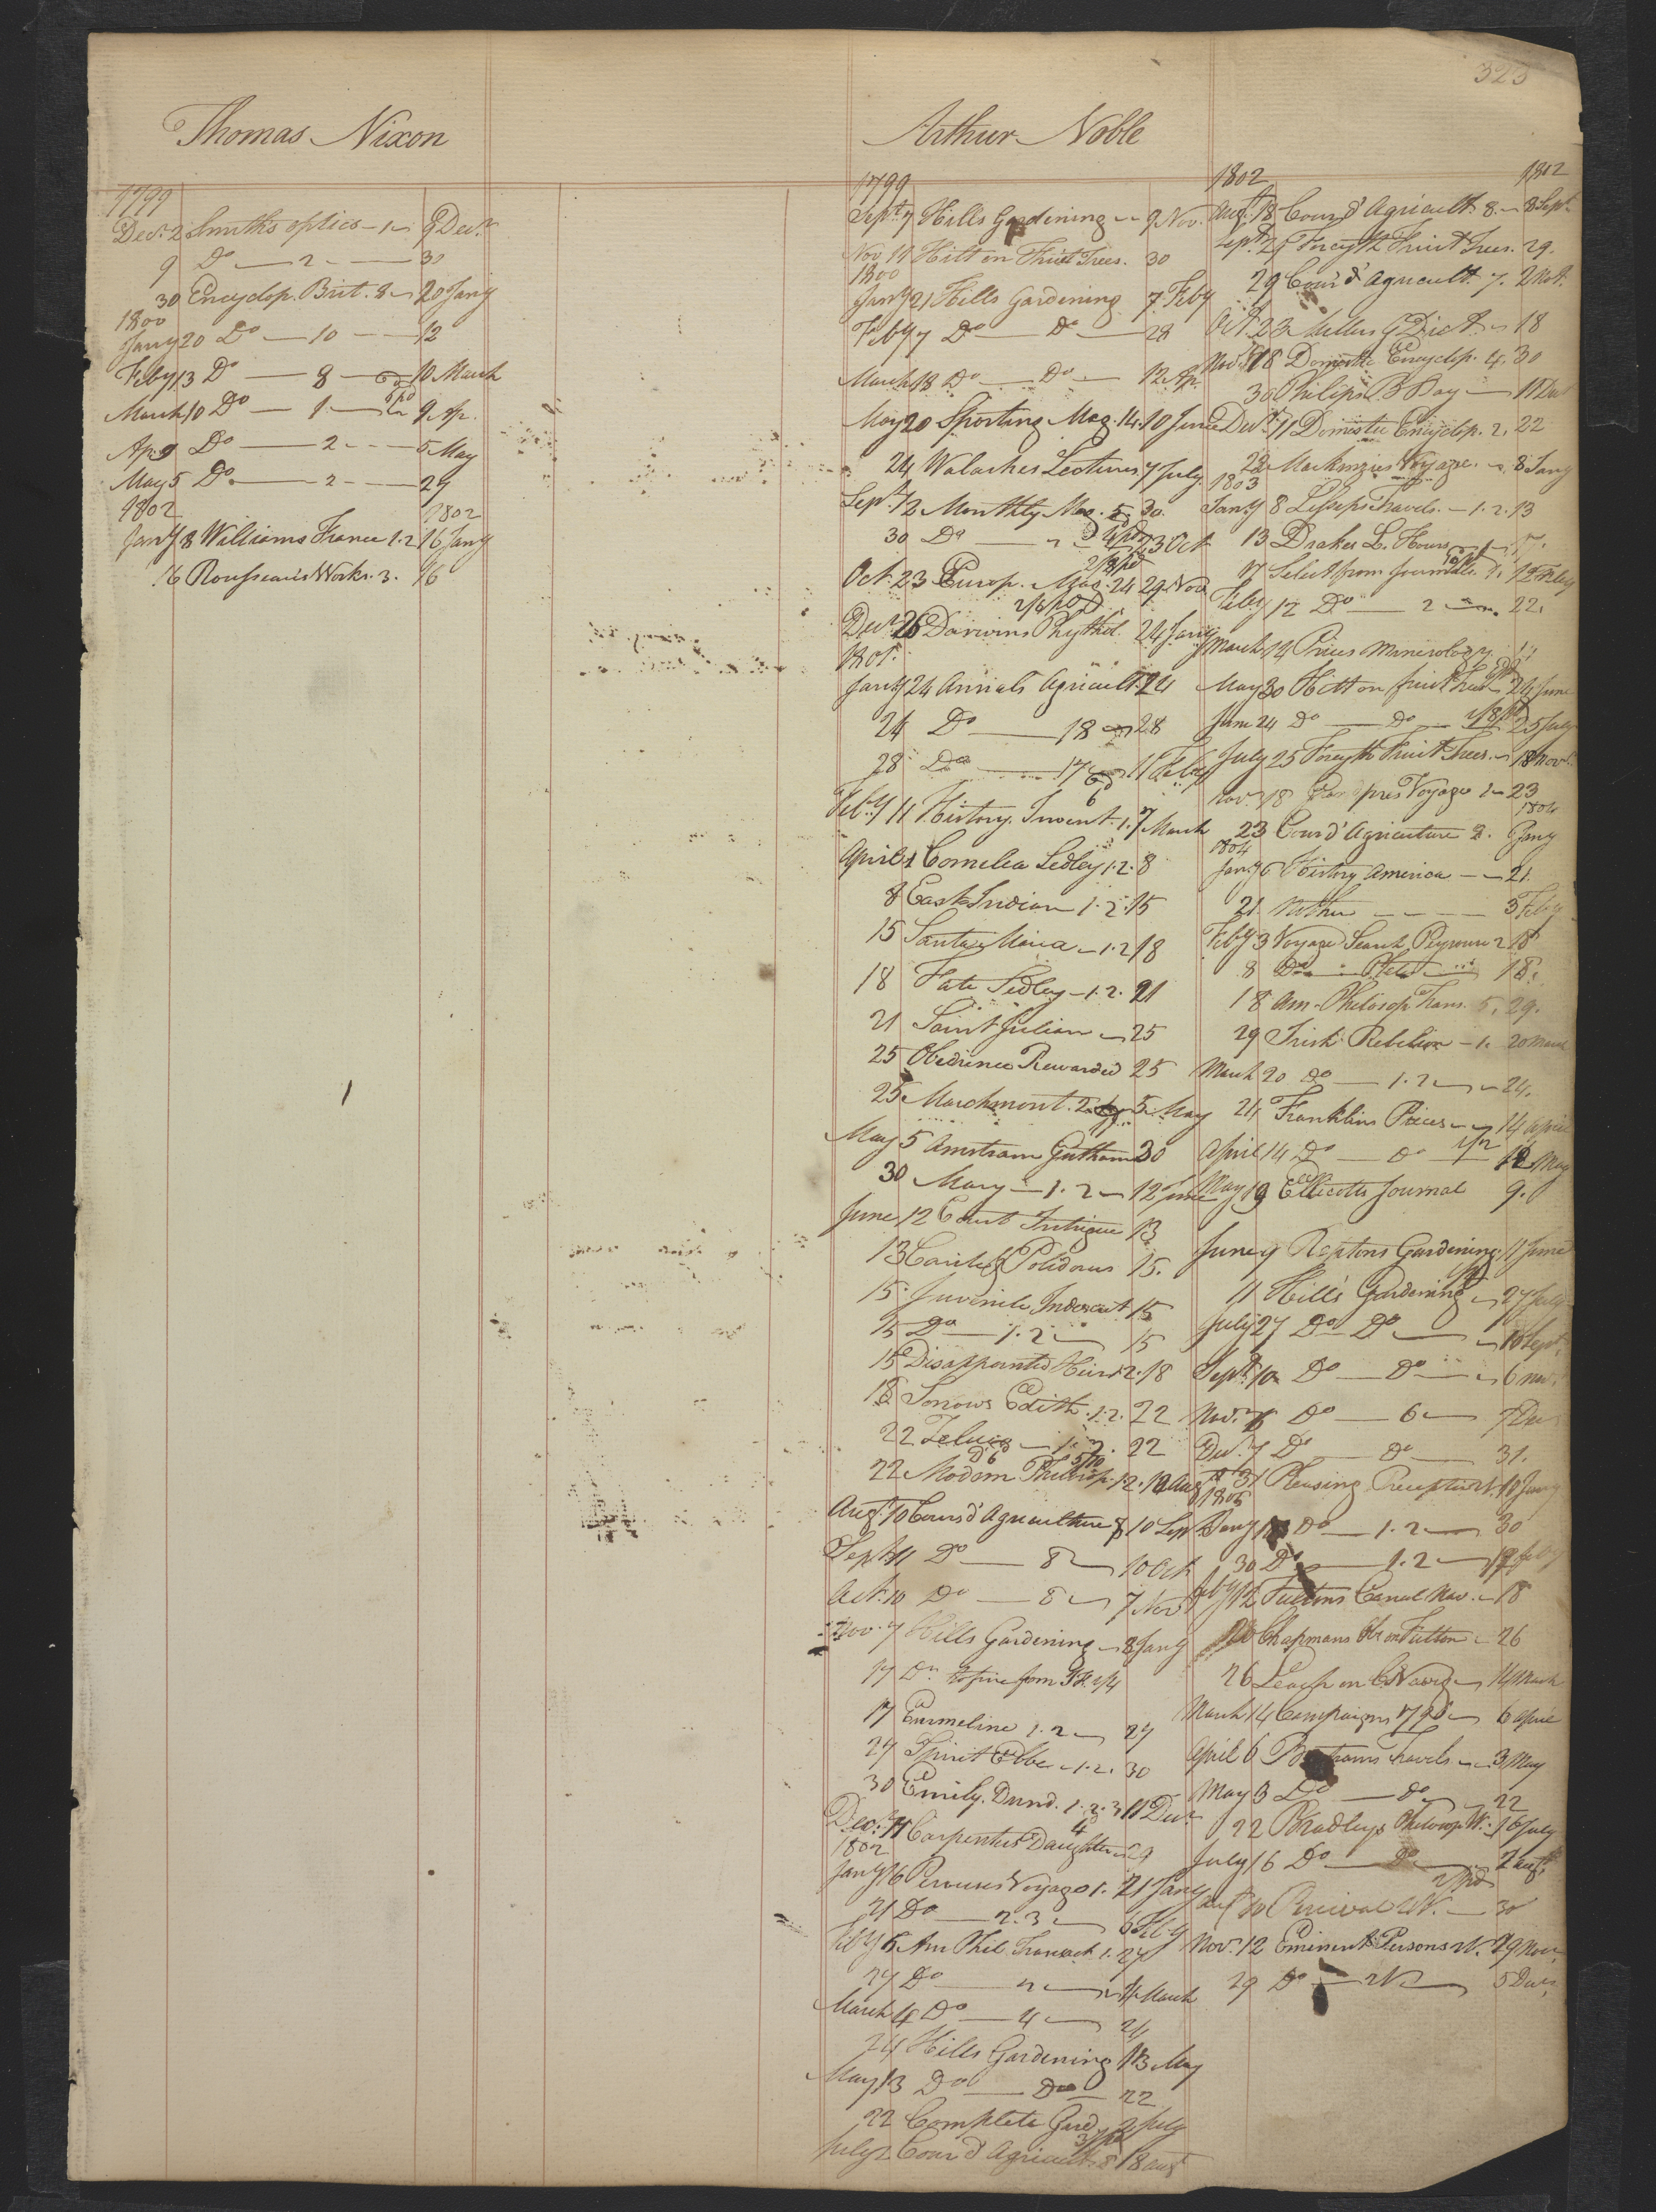 323
Thomas Nixon
1799
Decr. 2 Smith's optics - 1 - 9 Decr.
9 Do — 2 — 30
30 Encyclop. Brit. 8 - 20 Jany
1800
Jany 20 Do — 10 — 12
Feby 13 Do — 8 — 10 March
March 10 Do — 1 — 9 Ap.
Ap. 9 Do — 2 - - - 5 May
May 5 Do — 2 - - - 29
1802 1802
Jany 8 Williams France 1.2 16 Jany
16 Rousseau's Works. 3. 16
Arthur Noble
1799
Sept. 7 Hills Gardening - 9 Nov.
Nov 19 Hitt on Fruit Trees. 30
1800
Jany 21 Hills Gardening 7 Feby
Feby 7 Do — Do — 28
March 18 Do — Do — 12 Ap.
May 20 Sporting Mag. 14. 10 June
24 Walaches Lectures 7 July
Sept. 12 Monthly Mag. 5. 30.
30 Do — 23 Oct
Oct. 23 Europ. Mag. 24 29 Nov
Decr. 26 Darwins Phythol. 24 Jany
1801.
Jany 24 Annals Agricult. 24
24 Do — 18 — 28
28 Do — 17 — 11 Feby
Feby 11 History. Invent. 1. 7 March
April 1 Cornelia Sedley 1.2. 8
8 East Indian 1.2. 15
15 Santa Maria - 1.2 18
18 Fate Sedley - 1.2. 21
21 Saint Julian — 25
25 Obedience Rewarded 25
25 Marchmont. 2. 5 May
May 5 Amstram 30
30 Mary — 1.2 — 12 June
June 12 Court Intrigue 13
13 Carite & Polidorus 15.
15. Juvenile Indescret 15
15 Do — 1.2 — 15
15 Disappointed Heir 1.2. 18
18 Sorrows Edith. 1.2. 22
22 Zeluco — 1.2. 22
22 Modern Philosop. 1.2. 10 Aug
Aug. 10 Cours d'Agriculture 8 10 Sept
Sept. 11 Do — 8 — 10 Oct
Oct. 10 Do — 8 — 7 Nov
Nov. 7 Hills Gardening — 8 Jany
17 Do
17 Emmeline 1.2 — 27
27 Spirit Elbe - 1.2. 30
30 Emily. Dund. 1.2.3 11 Decr
Decr. 11 Carpenters Daughter 29
1802
Jany 16 Perouses Voyage 1. 21 Jany
21 Do — 2.3 — 6 Feby
Feby 6 Am Phil Transact 1. 27
27 Do — 4 March
March 4 Do — 4 — 24
24 Hills Gardening 13 May
May 13 Do — Do — 22
22 Complete Gard. 2 July
July 2 Cour d'Agricult. 8 18 Augt
1802 1802
Aug. 18 Cour d'Agricult 8. - 8 Sept.
Sept. 21 Forsyth Fruit Trees. 29.
29 Cour d'Agricult. 7. 2 Oct.
Oct. 23 Millers G Dict. - 18
Nov. 18 Domestic Encyclop. 4. 30
30 Philips B Bay — 11 Decr
Decr. 11 Domestic Encyclop. 2. 22
22 Mackenzies Voyage. - 8 Jany
1803
Jany 8 Lesseps Travels. - 1.2. 13
13 Drakes L. Hours - 1 - 17.
17 Select from Journals 1. 12 Feby
Feby 12 Do — 2 — 22.
March 14 Prices Minerology
May 30 Hitt on fruit Trees 24 June
June 24 Do — Do — 25 July
July 25 Forsyth Fruit Trees. - 18 Nov.
Nov. 18 Voyage 1 - 23
1804
23 Cour d'Agriculture 2. 6 Jany
1804
Jany 6 History America — 21
21 — 3 Feby
Feby 3 Voyage Search Peyrouse 2 18
8 Do — 18.
18 Am. Philosop Trans. 5. 29.
29 Irish Rebelion - 1. 20 March
March 20 Do — 1.2 — 24.
24 Franklins Pieces — 14 April
April 14 Do — Do — 12 May
May 19 Ellicotts Journal 9.
June 7 Reptons Gardening. 11 June
11 Hill's Gardening - 27 July
July 27 Do — Do — 10 Sept.
Sept. 10 Do — Do — 6 Nov.
Nov. 6 Do — 6 — 7 Dec
Decr. 7 Do — Do — 31.
31 Pleasing Preceptor 1. 18 Jany
1805
Jany 18 Do — 1.2 — 30
30 Do — 1.2 — 12 Feby
Feby 12 Fultons Canal Nav. - 18
20 Chapmans Obs on Fulton - 26
26 Leach on C Navig - 14 March
March 14 Campaigns 1796 - 6 April
April 6 Bartrams Travels - 3 May
May 3 Do — Do — 22
22 Bradleys Philosop W. - 16 July
July 16 Do — Do — 2 Augt.
Aug. 10 Percival W. — 30
Nov. 12 Eminent Persons W. 29 Nov.
29 Do — W — 5 Decr.